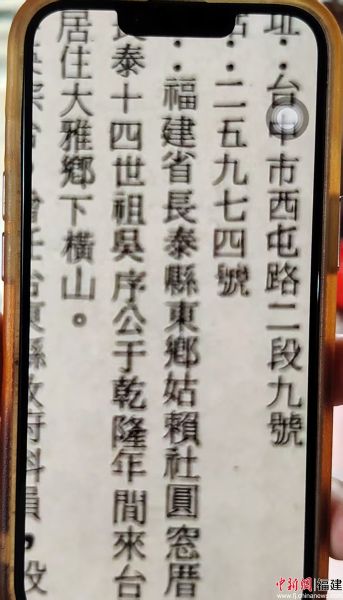 址：台中市西屯路二段九號
：二五九七四號
：福建省長泰縣東鄉姑賴社圓窓厝
長泰十四世祖吳序公于乾隆年間來台
居住大雅鄉下橫山。
曾任台東縣政府科員，
中新網 福建
www.fj.chinanews.com